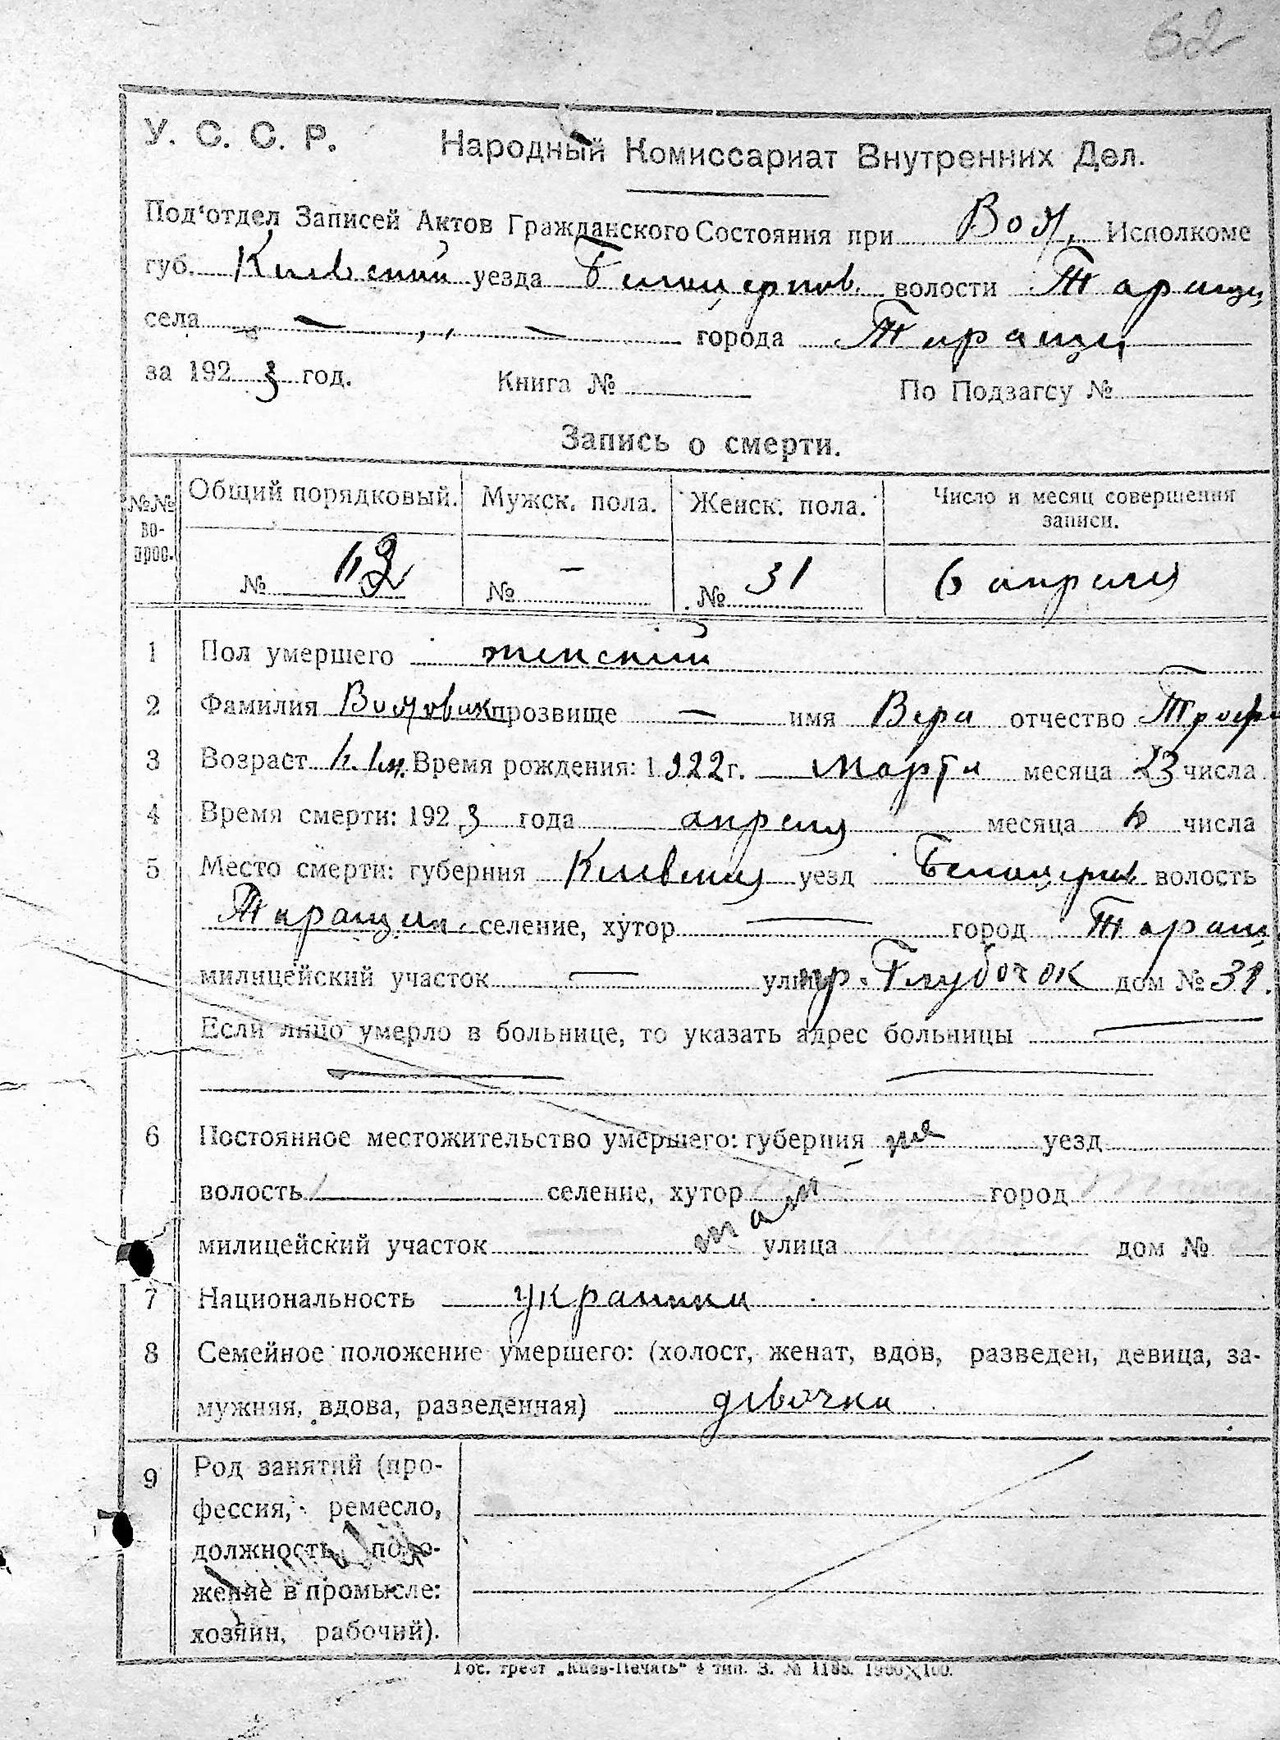 62
У. С. С. Р. Народный Комиссариат Внутренних Дел.
Под'отдел Записей Актов Гражданского Состояния при Вол. Исполкоме
губ. Киевский уезда Белоцерков. волости Таращ
села — „ — города Таращи
за 1923 год. Книга № По Подзагсу №
Запись о смерти.
№№ во-прос. Общий порядковый. Мужск. пола. Женск. пола. Число и месяц совершения записи.
№ № — № 31 6 апреля
1 Пол умершего женский
2 Фамилия прозвище — имя Вера отчество Троф
3 Возраст Время рождения: 1922 г. марта месяца 23 числа
4 Время смерти: 1923 года апреля месяца 6 числа
5 Место смерти: губерния Киевская уезд Белоцерков волость
Таращан. селение, хутор — город Таращ
милицейский участок — улица пр. Глубочок дом №
Если лицо умерло в больнице, то указать адрес больницы —
— —
6 Постоянное местожительство умершего: губерния уезд
волость селение, хутор город
милицейский участок там улица дом №
7 Национальность украинка
8 Семейное положение умершего: (холост, женат, вдов, разведен, девица, за-
мужняя, вдова, разведенная) дівочка
9 Род занятий (про-
фессия, ремесло,
должность, поло-
жение в промысле:
хозяин, рабочий).
Гос. трест „Киев-Печать" 4 тип. З. №